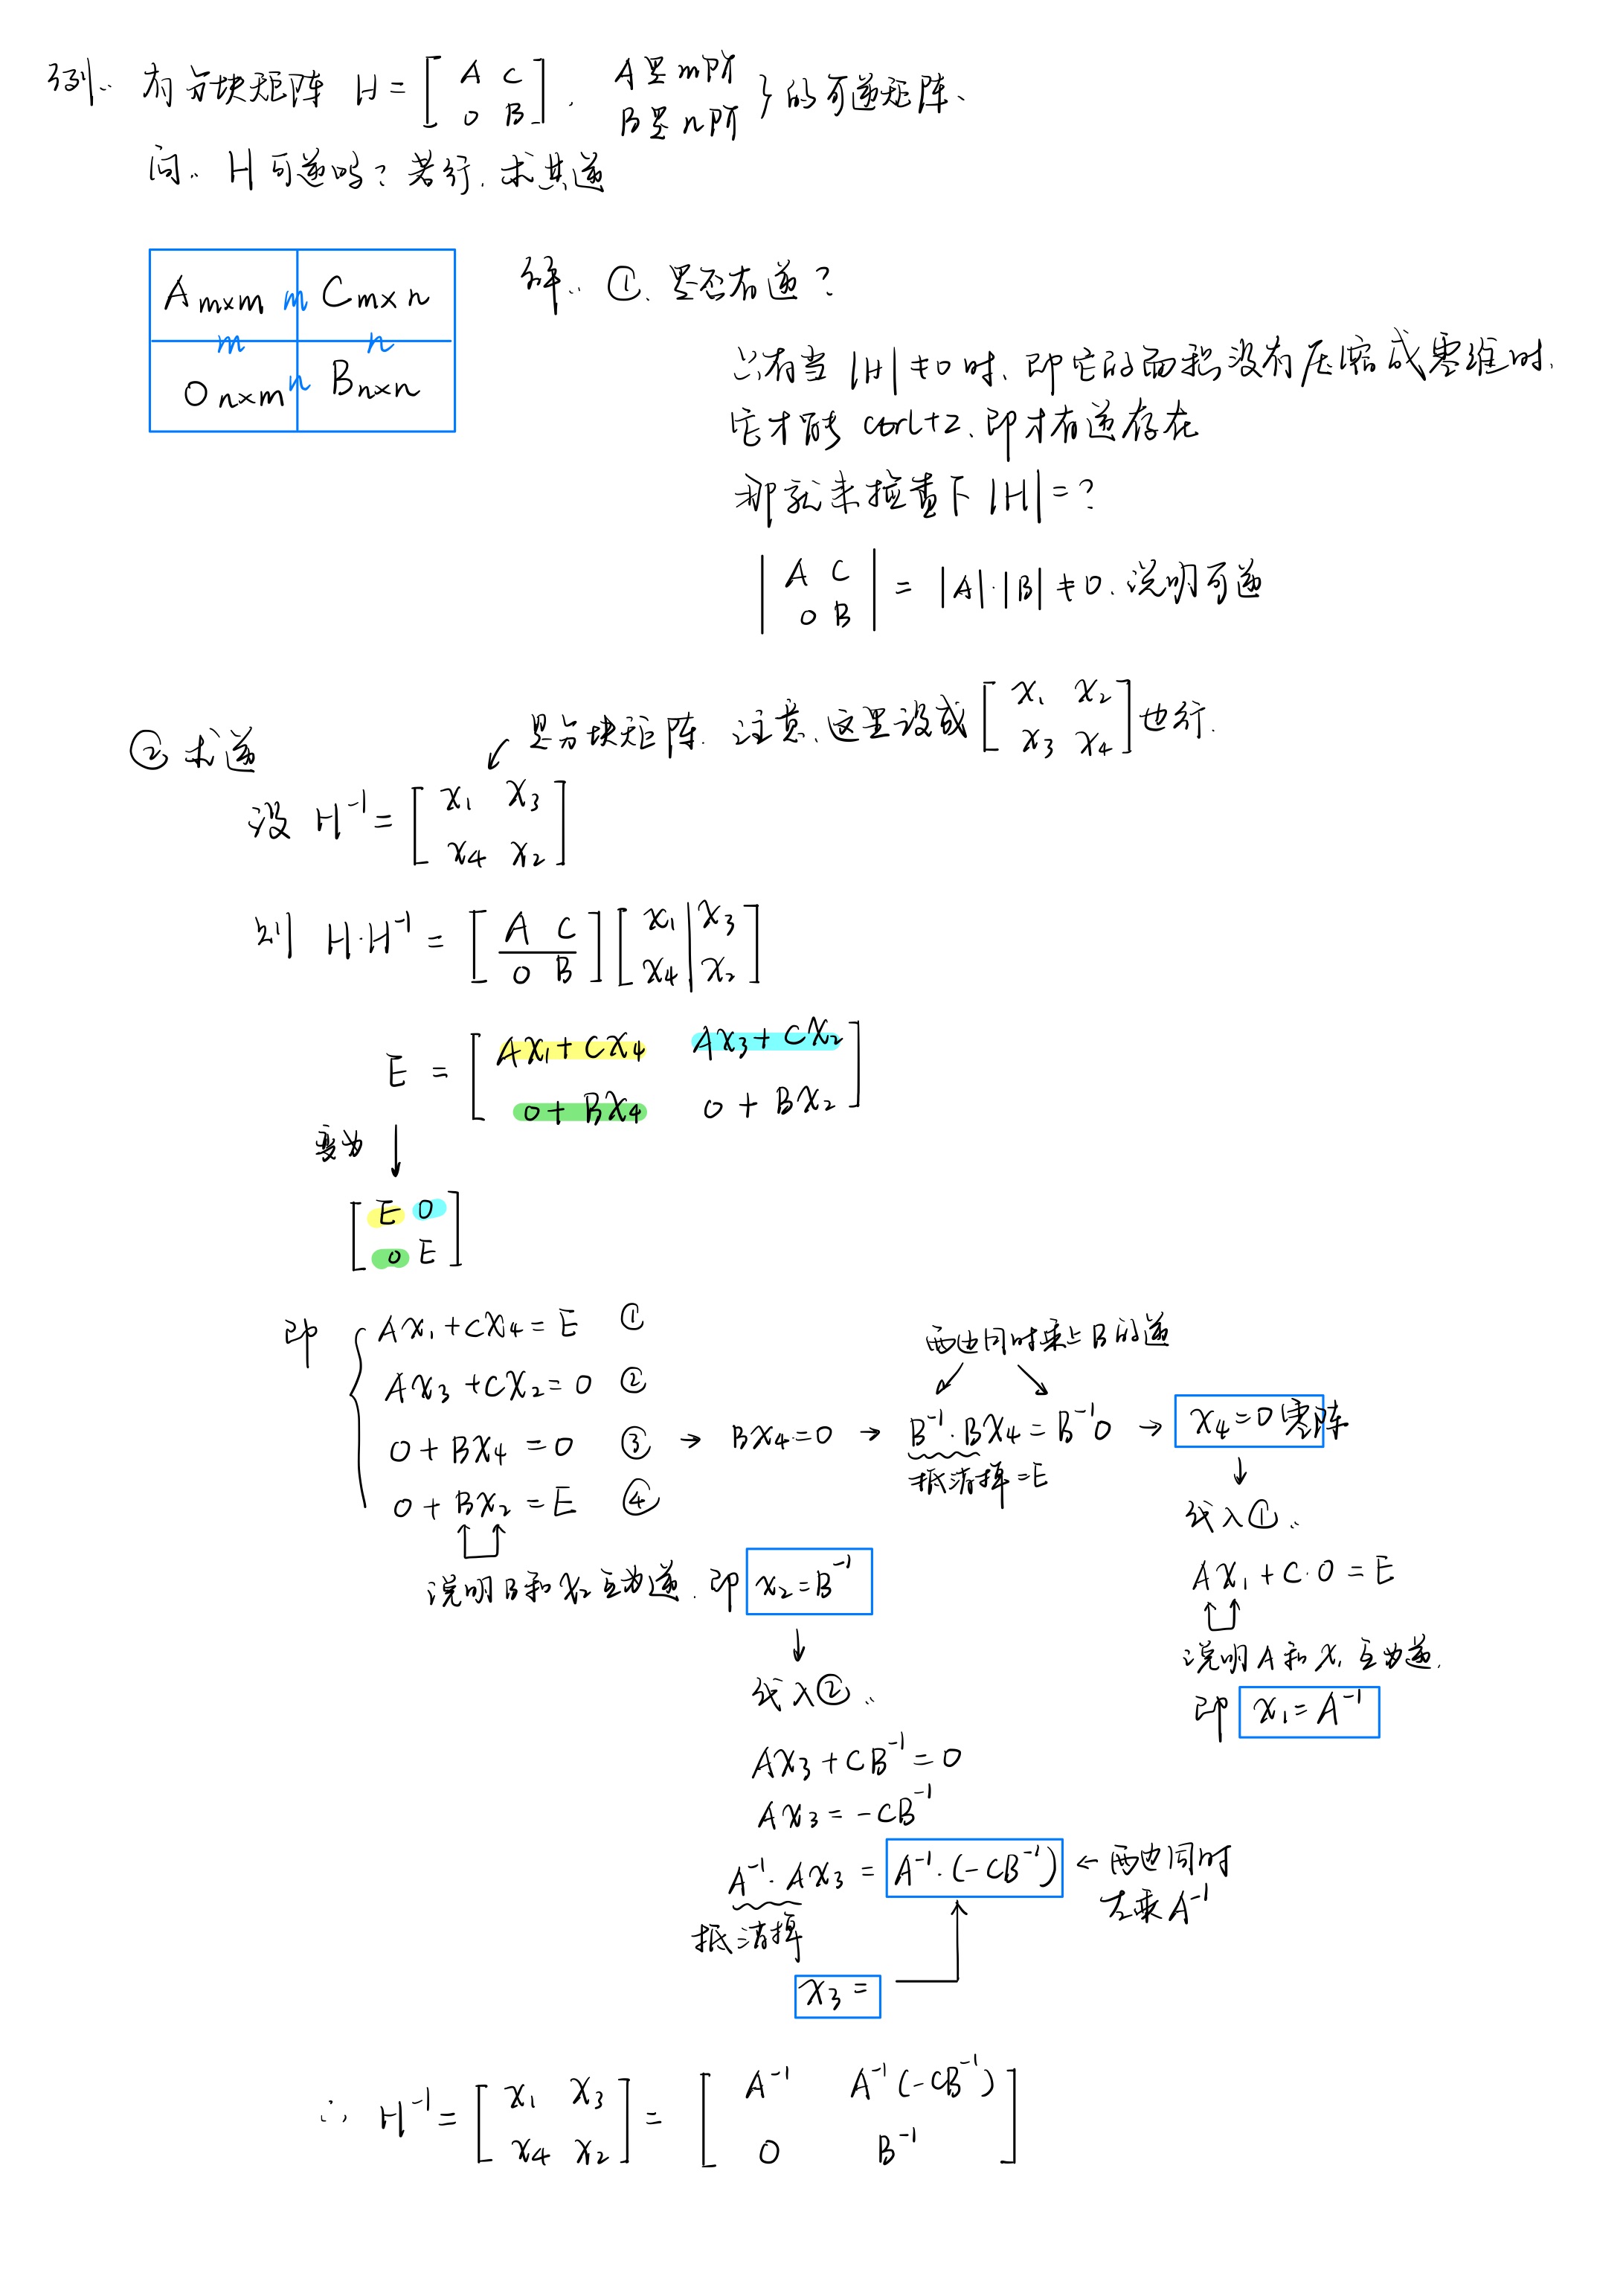 例: 有分块矩阵 H = [ A C ; 0 B ], A是m阶 B是n阶 } 的可逆矩阵、
问: H 可逆吗? 若行, 求其逆
A m×m m C m×n
m n
0 n×m n B n×n
解: ①、是否有逆?
只有当 |H| ≠ 0 时、即它的面积没有压缩成零维时,
它才能 ctrl+z、即才有逆存在
那就来检查下 |H| = ?
| A C ; 0 B | = |A|·|B| ≠ 0、说明可逆
② 求逆
↙ 是分块矩阵. 注意、这里设成 [ x₁ x₂ ; x₃ x₄ ] 也行.
设 H⁻¹ = [ x₁ x₃ ; x₄ x₂ ]
则 H·H⁻¹ = [ A C ; 0 B ] [ x₁ x₃ ; x₄ x₂ ]
E = [ Ax₁+Cx₄ Ax₃+Cx₂ ; 0+Bx₄ 0+Bx₂ ]
变为 ↓
[ E 0 ; 0 E ]
即 { Ax₁+Cx₄ = E ①
Ax₃+Cx₂ = 0 ②
0+Bx₄ = 0 ③ → Bx₄=0 → B⁻¹·Bx₄ = B⁻¹0 → x₄=0 零阵
0+Bx₂ = E ④
两边同时乘上 B 的逆
抵消掉=E
说明 B 和 x₂ 互为逆. 即 x₂=B⁻¹
↓
代入②:
Ax₃+CB⁻¹ = 0
Ax₃ = -CB⁻¹
A⁻¹·Ax₃ = A⁻¹·(-CB⁻¹) ← 两边同时左乘 A⁻¹
抵消掉
x₃ =
↓
代入①:
Ax₁+C·0 = E
说明 A 和 x₁ 互为逆.
即 x₁=A⁻¹
∴ H⁻¹ = [ x₁ x₃ ; x₄ x₂ ] = [ A⁻¹ A⁻¹(-CB⁻¹) ; 0 B⁻¹ ]